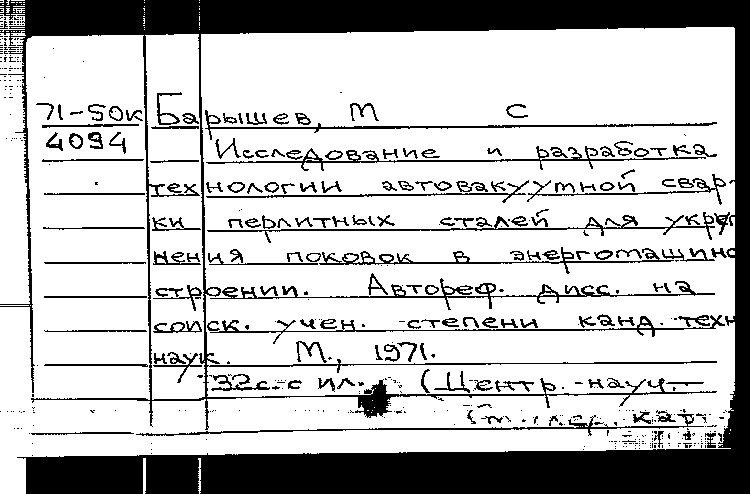 71-50к Барышев, М С
4094 Исследование и разработка
технологии автовакуумной свар-
ки перлитных сталей для укруп
нения поковок в энергомашино
строении. Автореф. дисс. на
соиск. учен. степени канд. техн
наук. М., 1971.
32с. с ил. (Центр. науч.-
См. след. карт.